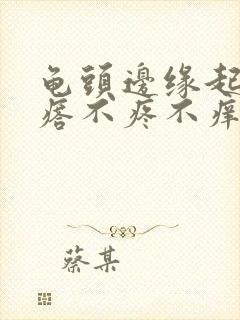 龟头邊缘起
痞不疼不痒
蔡某